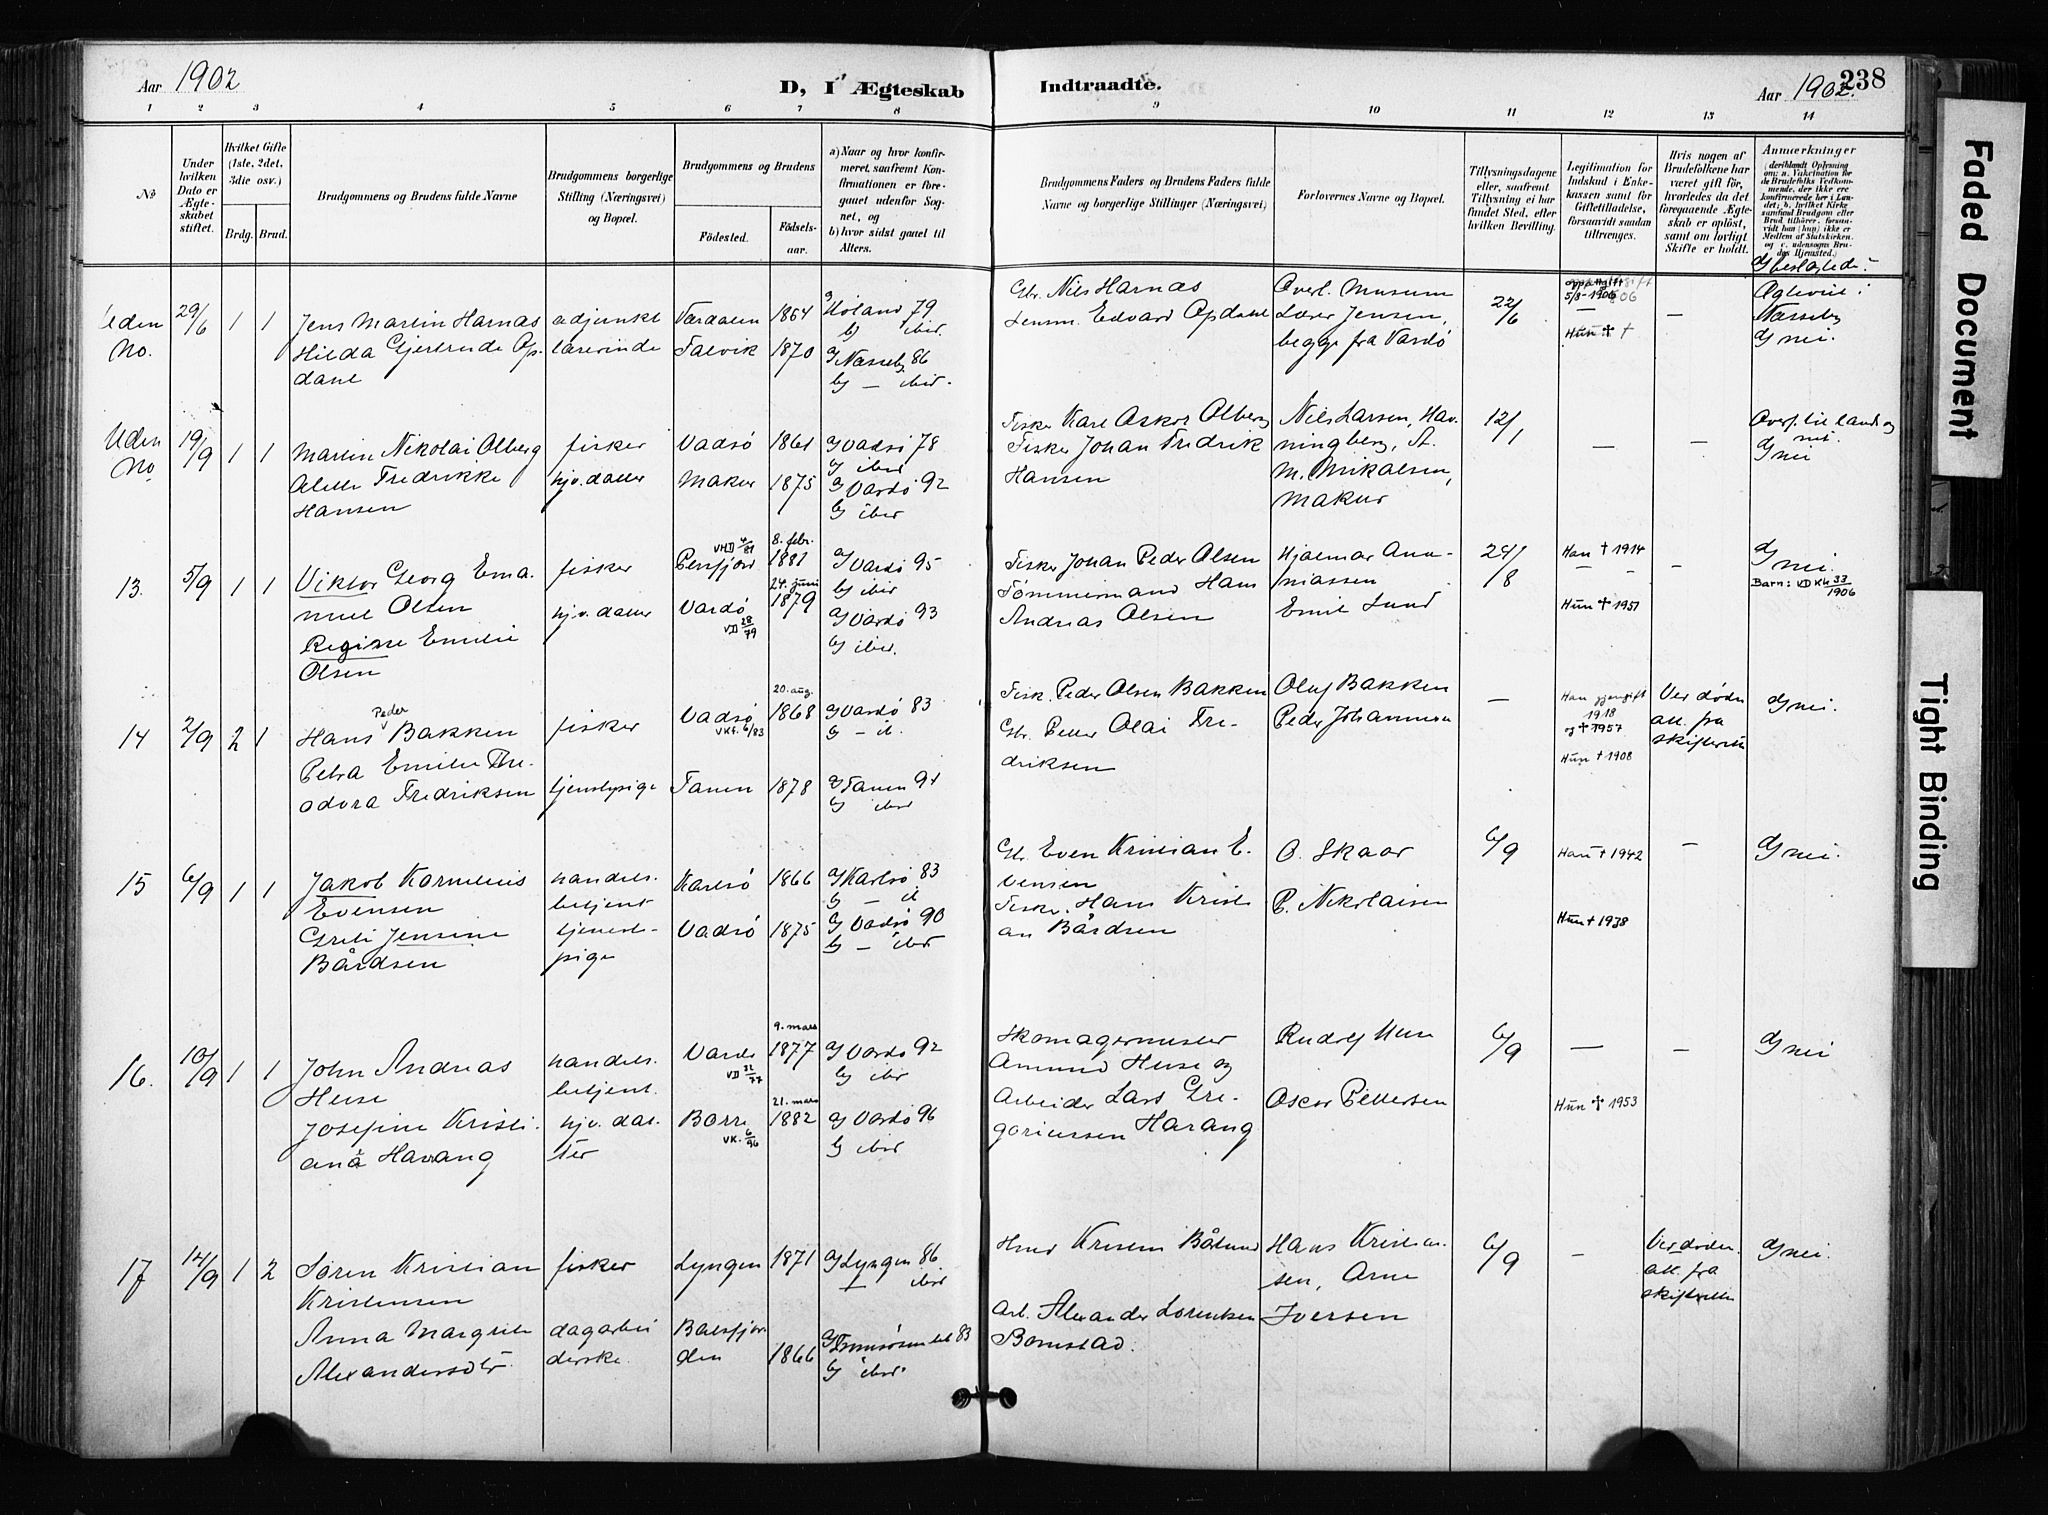 Aar 1902
D, I Ægteskab
Indtraadte.
Aar 1902.
238
1 2 3 4 5 6 7 8
9 10 11 12 13 14
No
Under hvilken Dato er Ægteskabet stiftet.
Hvilket Gifte (1ste, 2det, 3die osv.)
Brdg. Brud.
Brudgommens og Brudens fulde Navne
Brudgommens borgerlige Stilling (Næringsvei) og Bopæl.
Brudgommens og Brudens
Fødested.
Fødsels-aar.
a) Naar og hvor konfirmeret, saafremt Konfirmationen er foregaaet udenfor Sognet, og
b) hvor sidst gaaet til Alters.
Brudgommens Faders og Brudens Faders fulde Navne og borgerlige Stillinger (Næringsvei)
Forlovernes Navne og Bopæl.
Tillysningsdagene eller, saafremt Tillysning ei har fundet Sted, efter hvilken Bevilling.
Legitimation for Indskud i Enkekassen samt for Giftetilladelse, forsaavidt saadan tiltrænges.
Hvis nogen af Brudefolkene har været gift før, hvorledes da det foregaaende Ægteskab er opløst, samt om lovligt Skifte er holdt.
Anmærkninger
Uden No.
29/6 1 1
Jens Martin Harnas
Hilda Gjertrude Op-
dahl
adjunkt
lærerinde
Værdalen 1864
Talvik 1870
a) Høland 79
b) ibid.
a) Næsseby 86
b) — ibid.
Gbr. Nils Harnas
Lensm. Edvard Opdahl
Overl. Musum
Lærer Jensen,
begge fra Vardø
22/6
5/8-1906
Hun ✝
—
Næsseby
d) nei.
Uden No
19/9 1 1
Martin Nikolai Olberg
Aletta Fredrikke
Hansen
fisker
hjv. datter
Vadsø 1861
Makur 1875
a) Vadsø 78
b) ibid
a) Vardø 92
b) ibid
Fisker Karl Askor Olberg
Fisker Johan Fredrik
Hansen
Nils Larsen, Hav-
ningberg, A.
M. Mikalsen,
Makur
12/1
—
—
d) nei
13. 5/9 1 1
Viktor Georg Ema-
nuel Olsen
Regine Emilie
Olsen
fisker
hjv. datter
VHD 4/81
Persfjord
8. febr. 1881
24. juni 1879
Vardø
VD 28/79
a) Vardø 95
b) ibid
a) Vardø 93
b) ibid.
Fisker Johan Peder Olsen
Tømmermand Hans
Andreas Olsen
Hjalmar Ana-
niassen
Emil Lund
24/8
Han ✝ 1914
— –
Hun ✝ 1951
–
d) nei.
Barn: VD Kh 33/1906
14 2/9 2 1
Peder
Hans Bakken
Petra Emilie The-
odora Fredriksen
fisker
tjenstpige
Vadsø
VKf. 6/83
20. aug. 1868
Tanen 1878
a) Vardø 83
b) – ib.
a) Tanen 94
b) ibid
Fisk. Peder Olsen Bakken
Gbr. Petter Olai Fre-
driksen
Oluf Bakken
Peder Johannesen
—
Han gjengift
1918
og ✝ 1957
Hun ✝ 1908
Ved døden
att. fra
skifteretten
d) nei.
15 6/9 1 1
Jakob Kornelius
Evensen
Greti Jensine
Bårdsen
handels-
betjent
tjenest-
pige
Karlsø 1866
Vadsø 1875
a) Karlsø 83
b) – ib
a) Vadsø 90
b) – ibid
Gbr. Even Kristian E-
vensen
Fisker Hans Kristi-
an Bårdsen
O. Skaar
P. Nikolaisen
6/9
Han ✝ 1942
Hun ✝ 1938
–
d) nei.
16. 10/9 1 1
John Andreas
Heise
Josefine Kristi-
ana Harang
handels-
betjent.
hjv. dat-
ter
Vardø
VD 32/77
9. mars 1877
21. mars 1882
VK. 6/96
a) Vardø 92
b) ibid
a) Vardø 96
b) ibid
Skomagermester
Amund Heise og
Arbeider Lars Gre-
goriussen Harang
Rudolf Heise
Oscar Pettersen
6/9
—
Hun ✝ 1953
–
d) nei
17 14/9 1 2
Søren Kristian
Kristensen
Anna Margrete
Alexandersdtr.
fisker
dagarbei
derske.
Lyngen 1871
Balsfjor-
den 1866
a) Lyngen 86
– ibid
b) ibid.
Kristen
Arb. Alexander Lorentsen
Bomstad.
Hans Kristian-
sen, Arne
Iversen
6/9
–
Ved døden
att. fra
skifteretten
d) nei.
Faded Document
Tight Binding